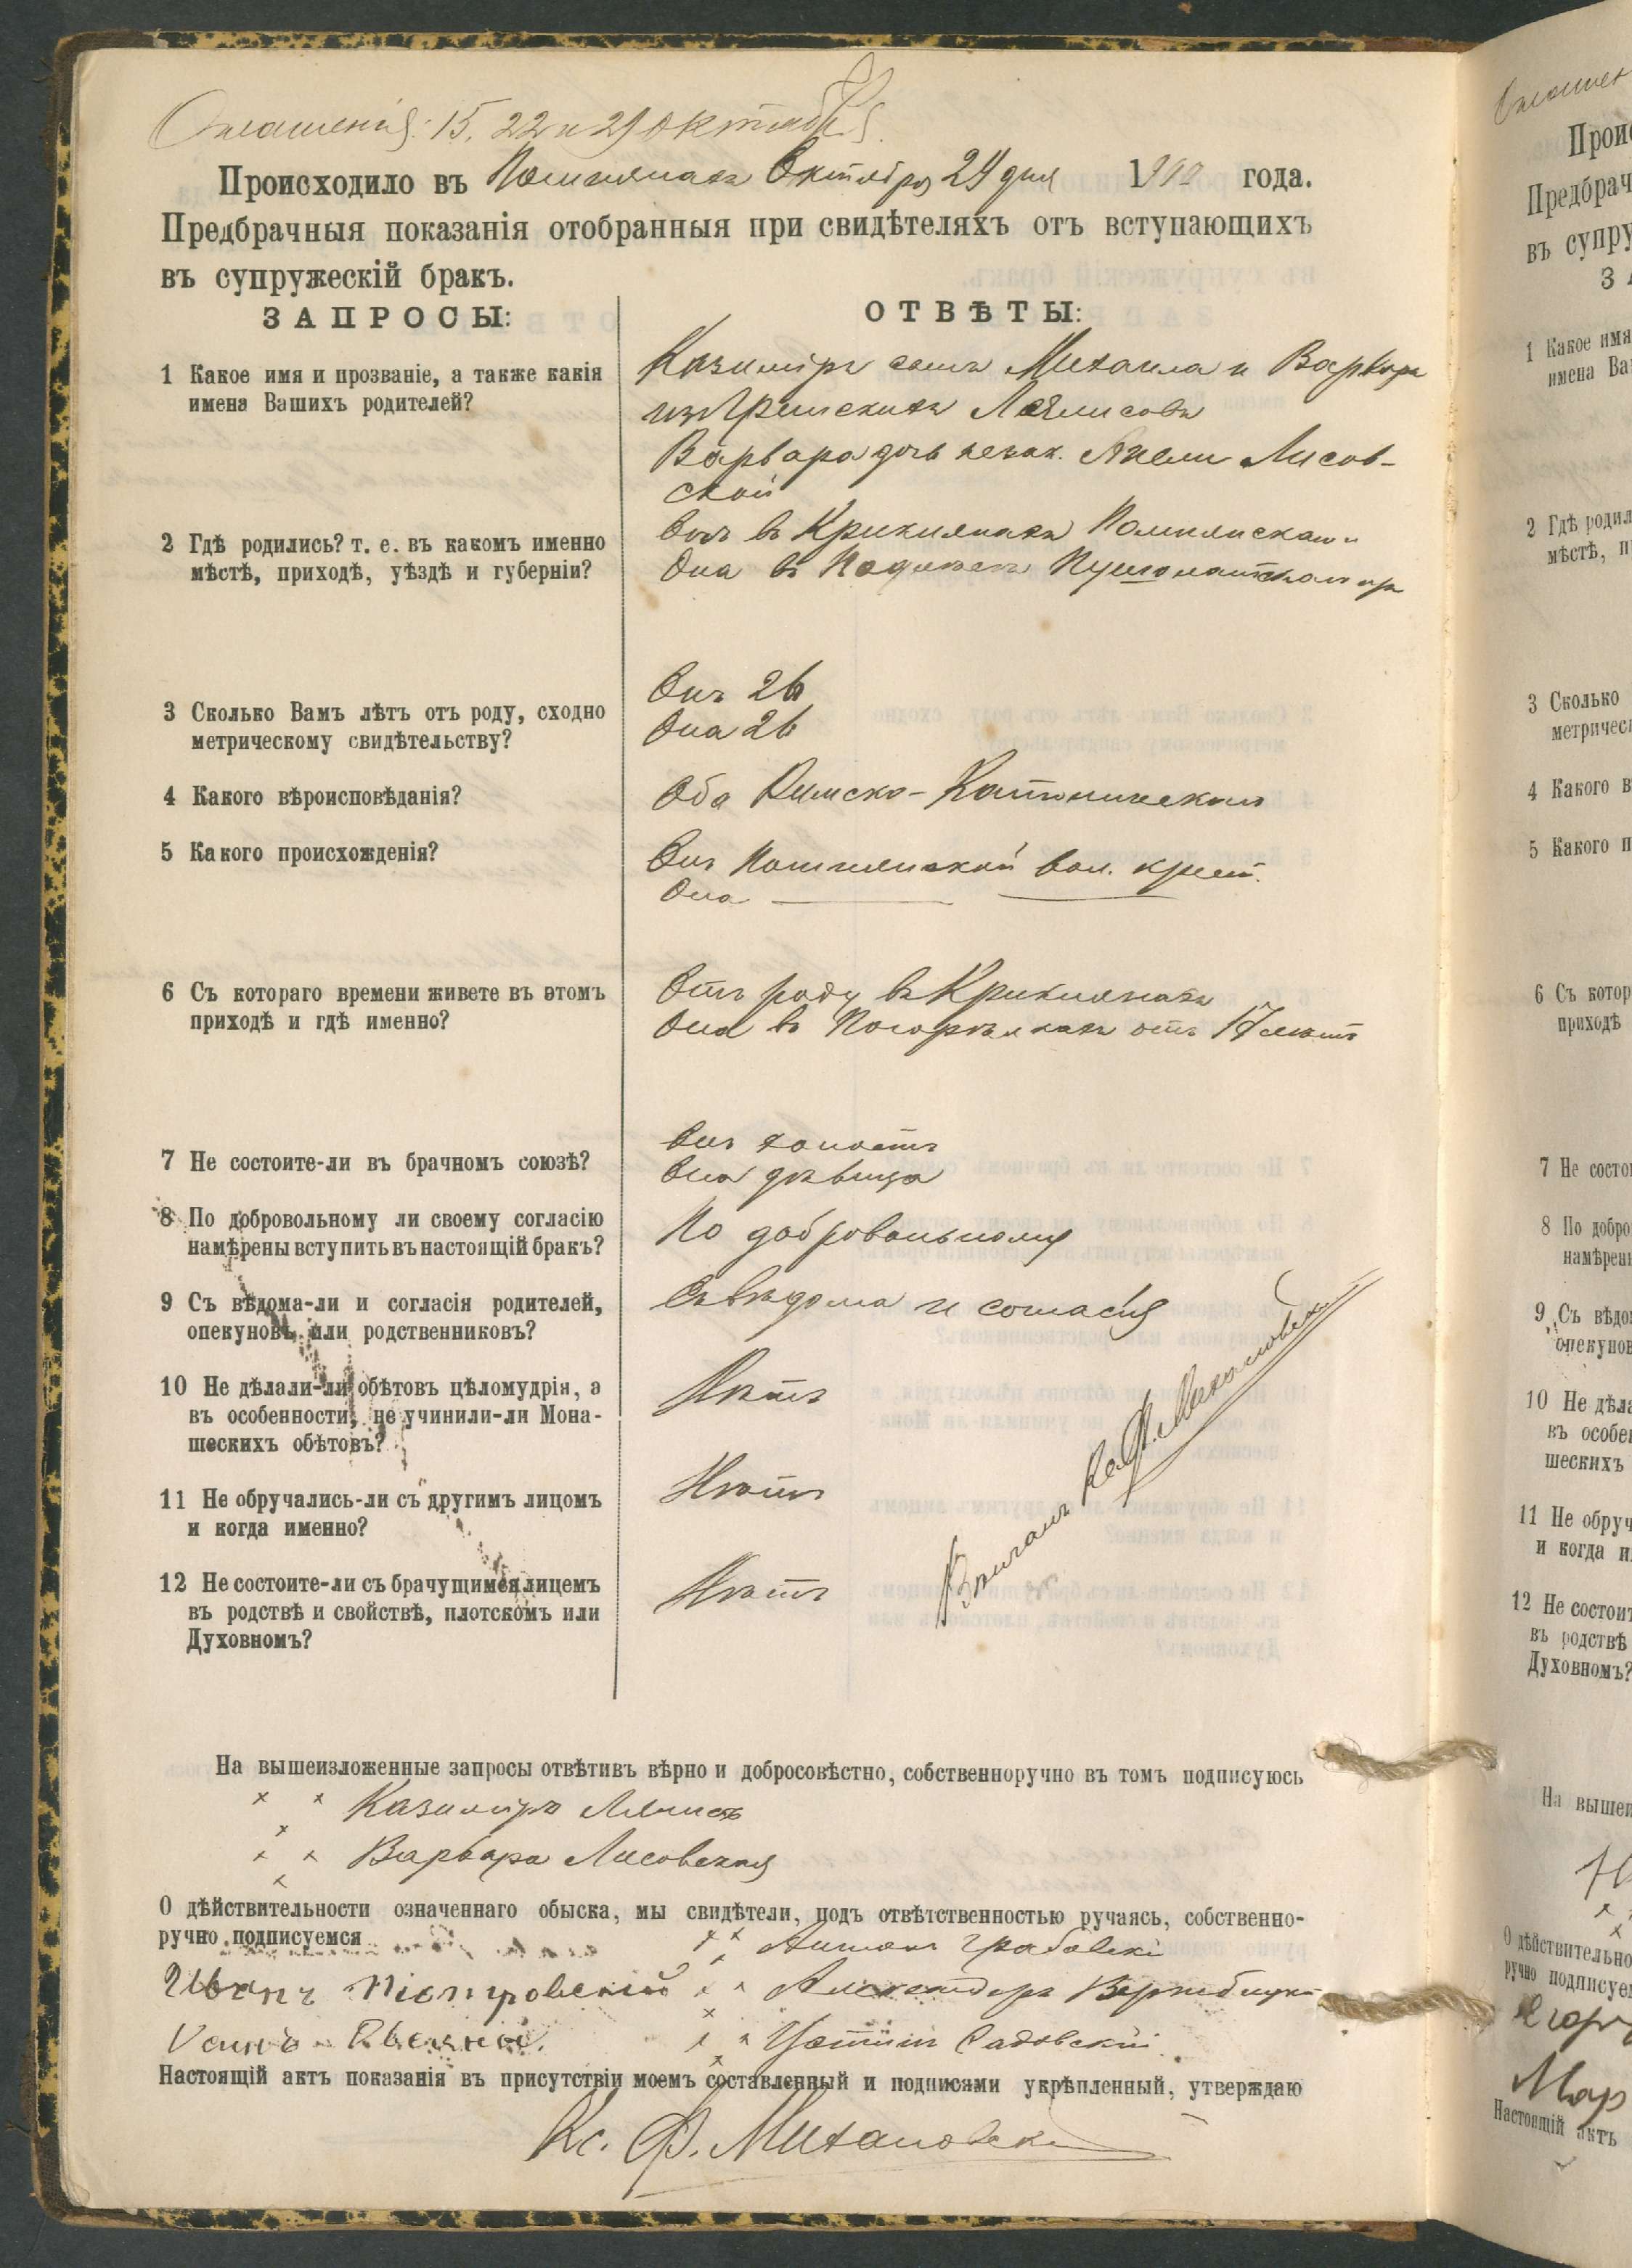 Оглашенія: 15, 22 и 29 Октября
Происходило въ Октября 24 дня 1900 года.
Предбрачныя показанія отобранныя при свидѣтеляхъ отъ вступающихъ
въ супружескій бракъ.
ЗАПРОСЫ:
1 Какое имя и прозваніе, а также какія
имена Вашихъ родителей?
2 Гдѣ родились? т. е. въ какомъ именно
мѣстѣ, приходѣ, уѣздѣ и губерніи?
3 Сколько Вамъ лѣтъ отъ роду, сходно
метрическому свидѣтельству?
4 Какого вѣроисповѣданія?
5 Какого происхожденія?
6 Съ котораго времени живете въ этомъ
приходѣ и гдѣ именно?
7 Не состоите-ли въ брачномъ союзѣ?
8 По добровольному ли своему согласію
намѣрены вступить въ настоящій бракъ?
9 Съ вѣдома-ли и согласія родителей,
опекуновъ или родственниковъ?
10 Не дѣлали-ли обѣтовъ цѣломудрія, а
въ особенности, не учинили-ли Мона-
шескихъ обѣтовъ?
11 Не обручались-ли съ другимъ лицомъ
и когда именно?
12 Не состоите-ли съ брачущимся лицемъ
въ родствѣ и свойствѣ, плотскомъ или
Духовномъ?
ОТВѢТЫ:
Казиміръ сынъ Михаила и Варвары
Варвара дочь незак. Анели Лисов-
ской
Онъ въ Крикилянахъ
Она въ
Онъ 26
Она 26
Оба Римско-Католическаго
Онъ вол. крест.
Она
Отъ роду въ Крикилянахъ
Она въ отъ 17 лѣтъ
Онъ холостъ
Она дѣвица
По добровольному
Съ вѣдома и согласія
Нѣтъ
Нѣтъ
Нѣтъ
Вѣнчалъ Кс. Ф. Михаловскій
На вышеизложенные запросы отвѣтивъ вѣрно и добросовѣстно, собственноручно въ томъ подписуюсь
x x x Казиміръ
x x x Варвара Лисовская
О дѣйствительности означеннаго обыска, мы свидѣтели, подъ отвѣтственностью ручаясь, собственно-
ручно подписуемся x x x Антонъ Грабовскі
Иванъ Піетровскій x x x Александръ
x x x Садовскій
Настоящій актъ показанія въ присутствіи моемъ составленный и подписями укрѣпленный, утверждаю
Кс. Ф. Михаловскі
Прои
Предбрач
въ супру
З А
1 Какое имя
имена Ва
2 Гдѣ родил
мѣстѣ, п
3 Сколько
метричес
4 Какого в
5 Какого п
6 Съ котор
приходѣ
7 Не состо
8 По добро
намѣрен
9 Съ вѣдо
опекунов
10 Не дѣла
въ особе
шескихъ
11 Не обруч
и когда и
12 Не состоит
въ родствѣ
Духовномъ?
На вышеи
О дѣйствительно
ручно подписуе
Мар
Настоящій актъ